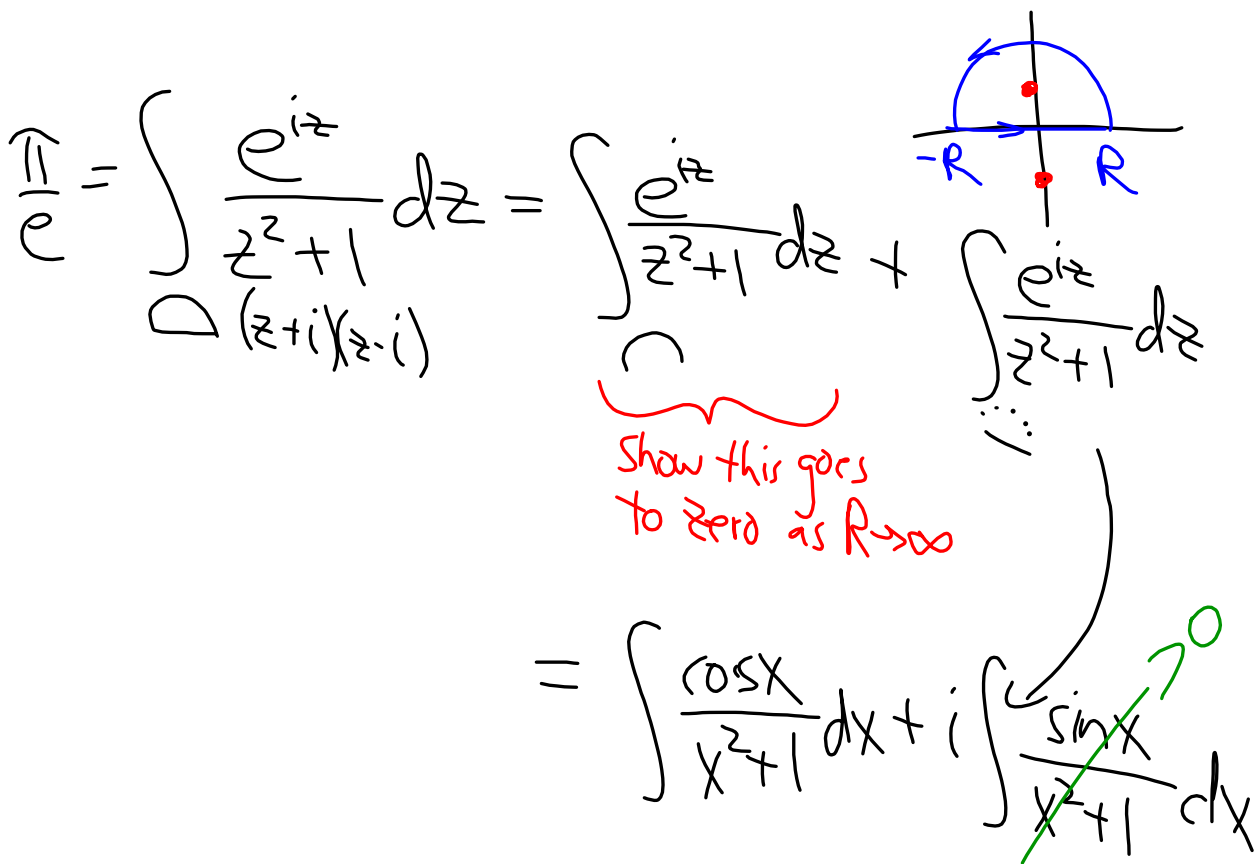 -R R
π/e = ∫ e^{iz}/(z²+1) dz = ∫ e^{iz}/(z²+1) dz + ∫ e^{iz}/(z²+1) dz
(z+i)(z-i)
show this goes
to zero as R→∞
= ∫ cosx/(x²+1) dx + i ∫ sinx/(x²+1) dx 0